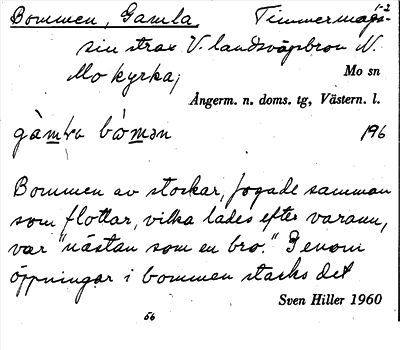 Bommen, Gamla Timmermags- 1-2
sin strax V. landsvägsbron N.
Mo kyrka;
Mo sn
Ångerm. n. doms. tg, Västern. l.
gàmḷa bòmən 196
Bommen av stockar, fogade samman
som flottar, vilka lades efter varann,
var "nästan som en bro." Genom
öppningar i bommen stacks det
Sven Hiller 1960
56